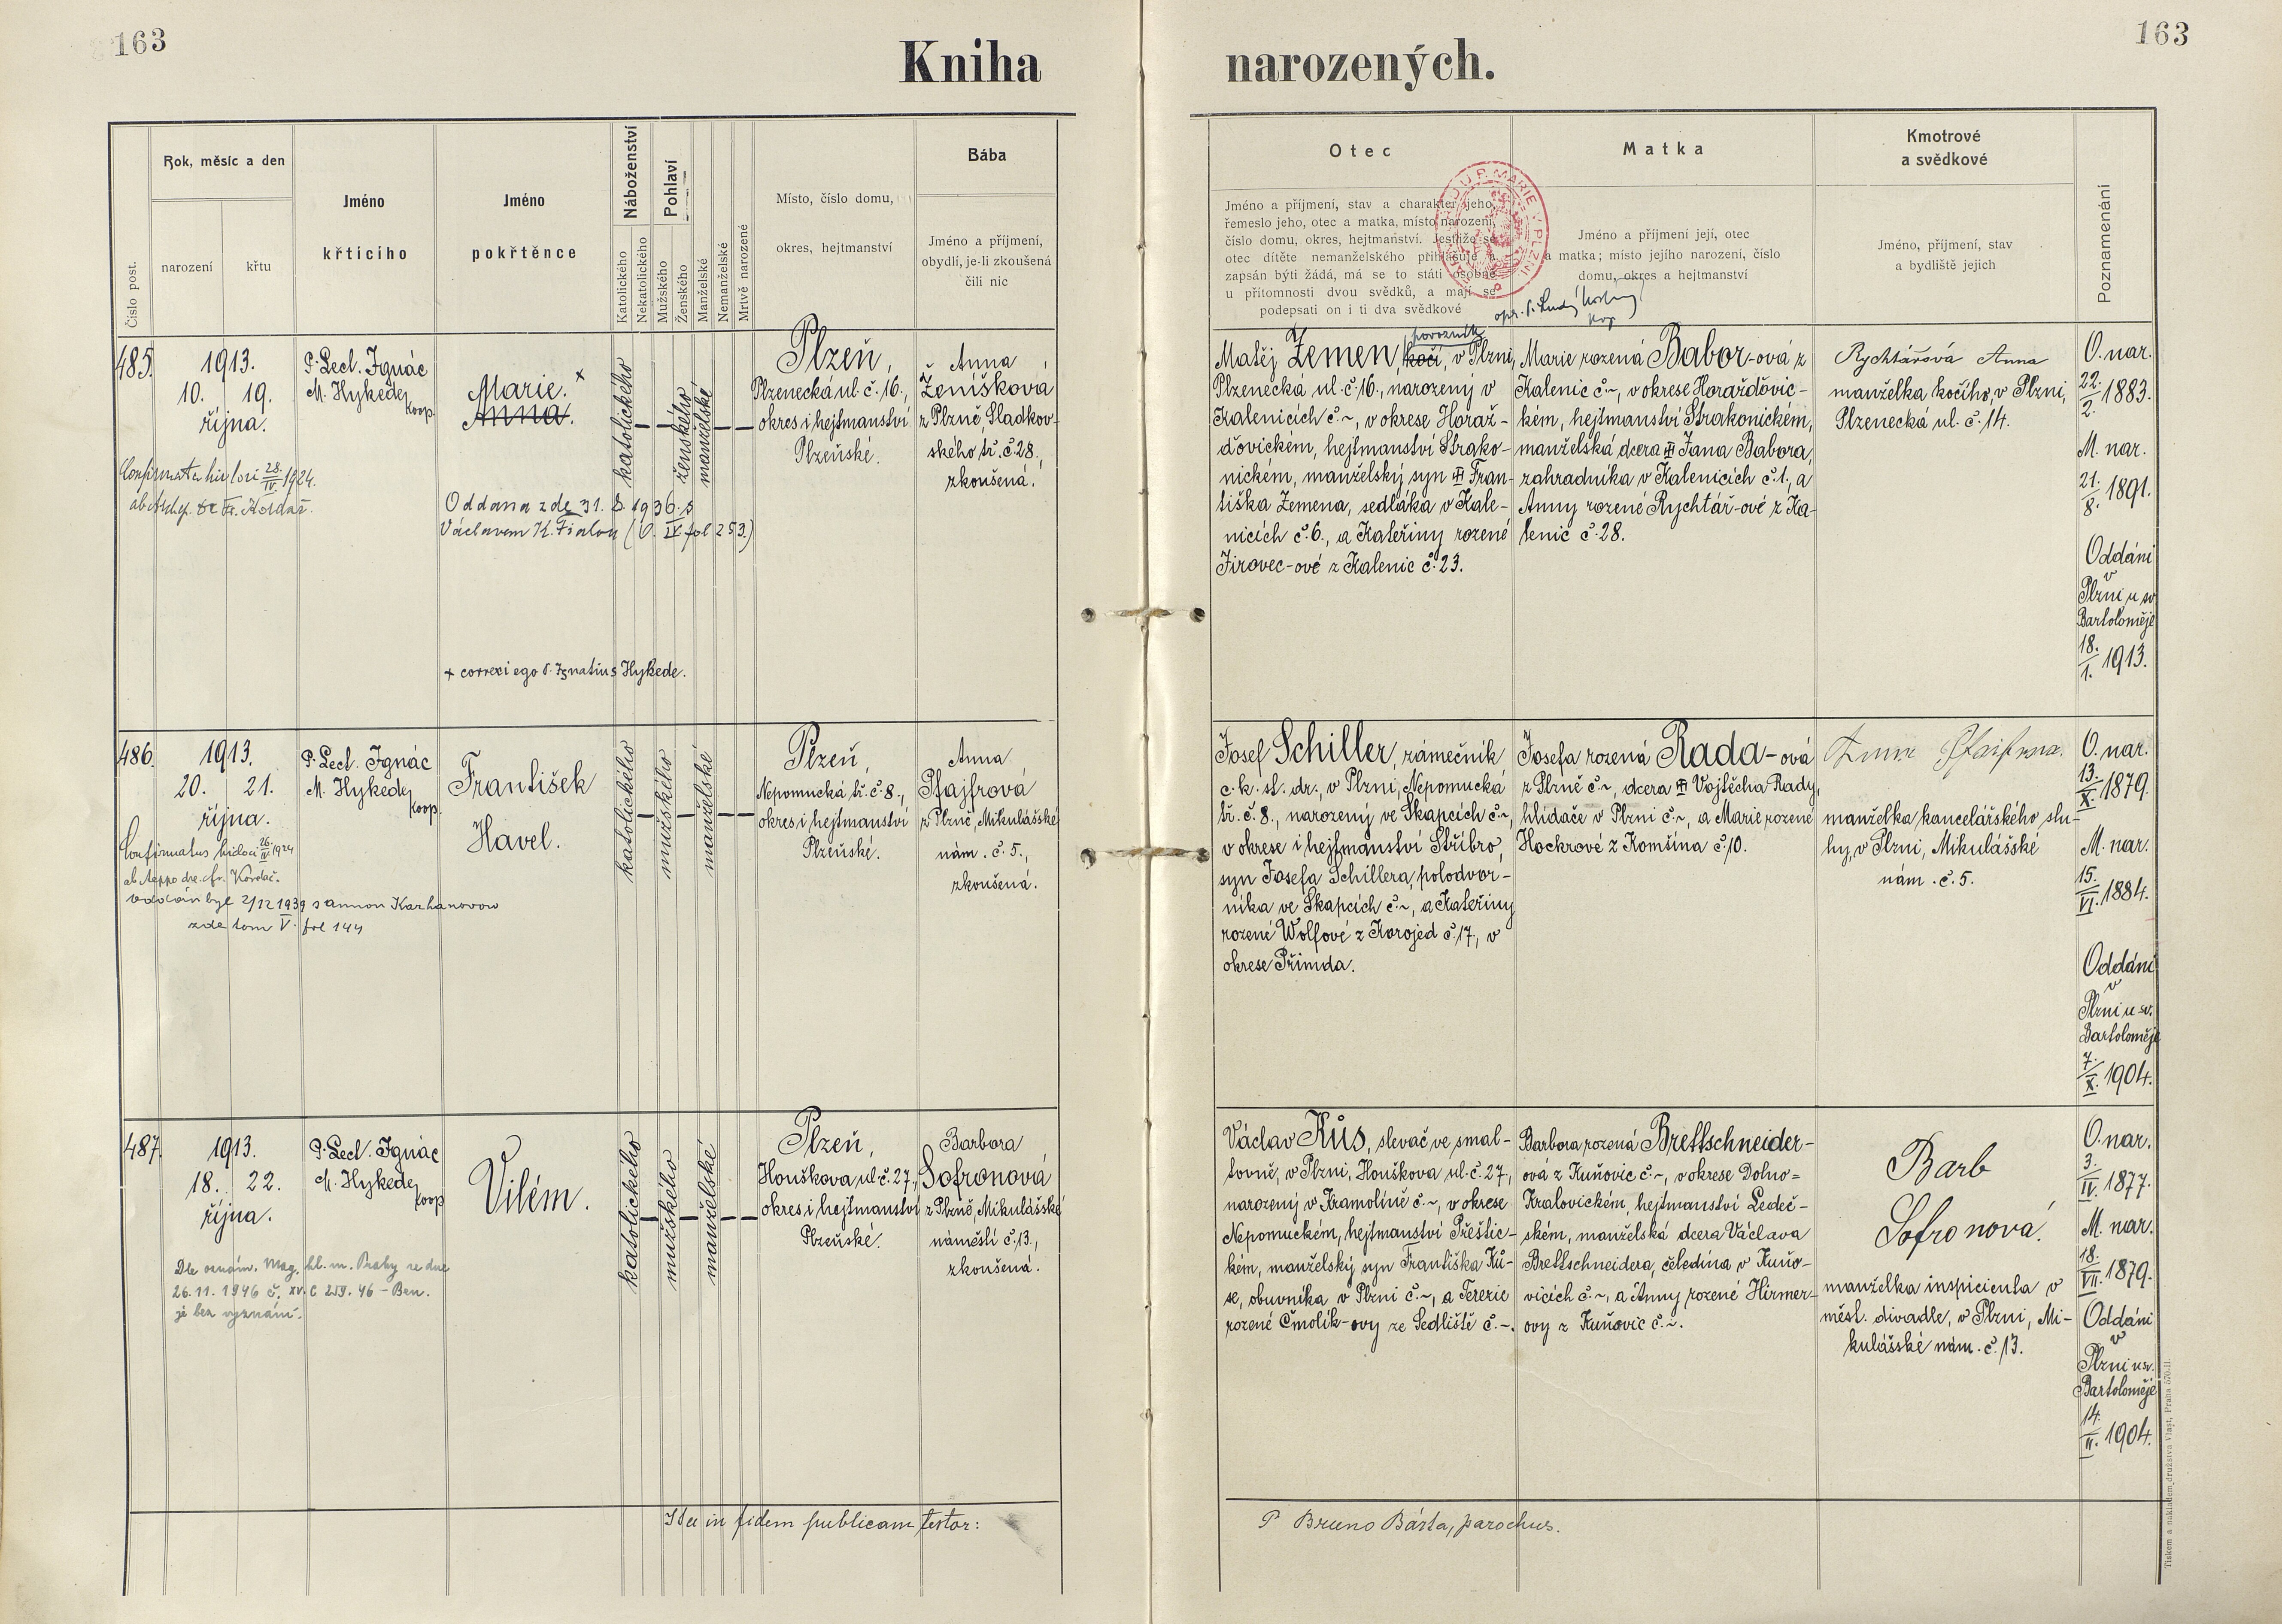 163
163
Kniha narozených.
Číslo post.
Rok, měsíc a den
narození
křtu
Jméno
křticího
Jméno
pokřtěnce
Náboženství
Katolického
Nekatolického
Pohlaví
Mužského
Ženského
Manželské
Nemanželské
Mrtvě narozené
Místo, číslo domu,
okres, hejtmanství
Bába
Jméno a příjmení,
obydlí, je-li zkoušená
čili nic
Otec
Jméno a příjmení, stav a charakter jeho,
řemeslo jeho, otec a matka, místo narození,
číslo domu, okres, hejtmanství. Jestliže se
otec dítěte nemanželského přihlašuje a
zapsán býti žádá, má se to státi osobně
u přítomnosti dvou svědků, a mají se
podepsati on i ti dva svědkové
Matka
Jméno a příjmení její, otec
a matka; místo jejího narození, číslo
domu, okres a hejtmanství
Kmotrové
a svědkové
Jméno, příjmení, stav
a bydliště jejich
Poznamenání
485.
1913.
10. 19.
října.
P. Lect. Ignác
M. Hykede,
koop.
Marie. x
Anna.
katolického
ženského
manželské
Plzeň,
Plzenecká ul. č. 16.,
okres i hejtmanství
Plzeňské.
Anna
Ženíšková,
z Plzně, Sladkov-
ského tř. č. 28.,
zkoušená.
28. IV. 1924.
Oddána zde 31. 8. 1936 s
Václavem K. Fialou (O. IV. fol 253.)
+ correxi ego P. Ignatius Hykede.
povozník
Matěj Zemen, kočí, v Plzni,
Plzenecká ul. č. 16., narozený v
Kalenicích č. ~, v okrese Horaž-
ďovickém, hejtmanství Strako-
nickém, manželský syn Fran-
tiška Zemena, sedláka v Kale-
nicích č. 6., a Kateřiny rozené
Jirovec-ové z Kalenic č. 23.
Marie rozená Babor-ová z
Kalenic č. ~, v okrese Horažďovic-
kém, hejtmanství Strakonickém,
manželská dcera Jana Babora,
zahradníka v Kalenicích č. 1., a
Anny rozené Rychtář-ové z Ka-
lenic č. 28.
Rychtářová Anna
manželka kočího, v Plzni,
Plzenecká ul. č. 14.
O. nar.
22. 2. 1883.
M. nar.
21. 8. 1891.
Oddáni
v
Plzni u sv.
Bartoloměje
18. 1. 1913.
486.
1913.
20. 21.
října.
P. Lect. Ignác
M. Hykede,
koop.
František
Havel.
katolického
mužského
manželské
Plzeň,
Nepomucká tř. č. 8.,
okres i hejtmanství
Plzeňské.
Anna
Pfajfrová
z Plzně, Mikulášské
nám. č. 5.,
zkoušená.
Confirmatus hic loci 26. IV. 1924
oddán byl 2/12 1939 s Annou Karhanovou
zde tom V. fol 144
Josef Schiller, zámečník
c. k. st. dr., v Plzni, Nepomucká
tř. č. 8., narozený ve Skapcích č. ~,
v okrese i hejtmanství Stříbro,
syn Josefa Schillera, polodvor-
níka ve Skapcích č. ~, a Kateřiny
rozené Wolfové z Korojed č. 17., v
okrese Přimda.
Josefa rozená Rada-ová
z Plzně č. ~, dcera Vojtěcha Rady,
hlídače v Plzni č. ~, a Marie rozené
Hockrové z Komšína č. 10.
manželka kancelářského slu-
hy, v Plzni, Mikulášské
nám. č. 5.
O. nar.
13. X. 1879.
M. nar.
15. VI. 1884.
Oddáni
v
Plzni u sv.
Bartoloměje
7. X. 1904.
487.
1913.
18. 22.
října.
P. Lect. Ignác
M. Hykede,
koop
Vilém.
katolického
mužského
manželské
Plzeň,
Houškova ul. č. 27.,
okres i hejtmanství
Plzeňské.
Barbora
Sofronová
z Plzně, Mikulášské
náměstí č. 13.,
zkoušená.
Dle oznám. Mag. hl. m. Prahy ze dne
26. 11. 1946 č. XV. C 259. 46 - Ben.
je bez vyznání.
Václav Kůs, slevač ve smal-
tovně, v Plzni, Houškova ul. č. 27.,
narozený v Kramolíně č. ~, v okrese
Nepomuckém, hejtmanství Přeštic-
kém, manželský syn Františka Ků-
se, obuvníka v Plzni č. ~, a Terezie
rozené Čmolík-ovy ze Sedliště č. ~.
Barbora rozená Brettschneider-
ová z Kuňovic č. ~, v okrese Dolno=
Kralovickém, hejtmanství Ledeč-
ském, manželská dcera Václava
Brettschneidera, čeledína v Kuňo-
vicích č. ~, a Anny rozené Hirmer-
ovy z Kuňovic č. ~.
Barb
Sofronová.
manželka inspicienta v
měst. divadle, v Plzni, Mi-
kulášské nám. č. 13.
O. nar.
3. IV. 1877.
M. nar.
18. VII. 1879.
Oddáni
v
Plzni u sv.
Bartoloměje
14. II. 1904.
Ita in fidem publicam testor:
P Bruno Bárta, parochus.
Tiskem a nákladem družstva Vlast, Praha 570-II.